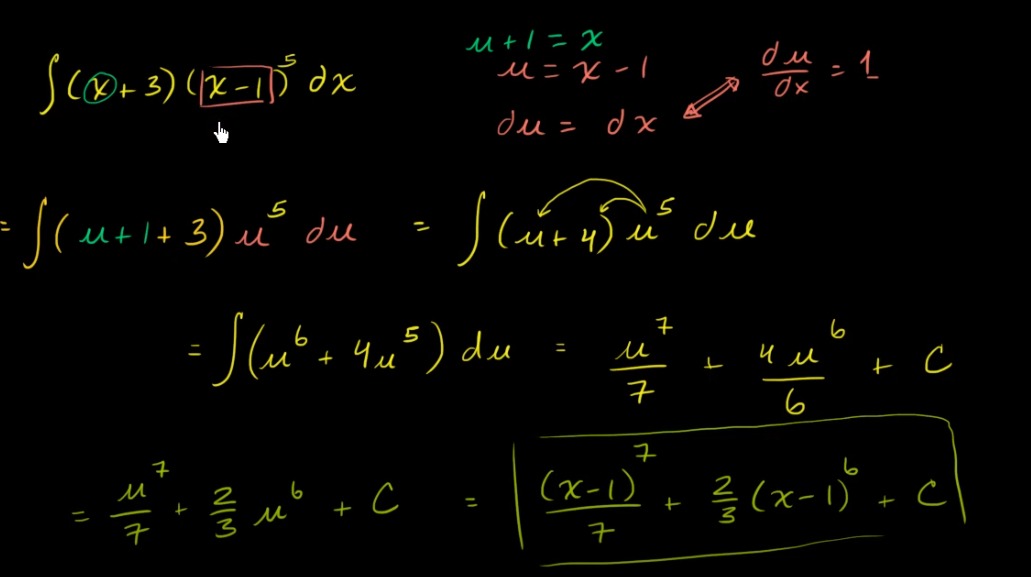 ∫(x+3)(x-1)⁵ dx
u+1 = x
u = x-1
du/dx = 1
du = dx
= ∫(u+1+3) u⁵ du = ∫(u+4) u⁵ du
= ∫(u⁶ + 4u⁵) du = u⁷/7 + 4u⁶/6 + C
= u⁷/7 + 2/3 u⁶ + C = (x-1)⁷/7 + 2/3 (x-1)⁶ + C